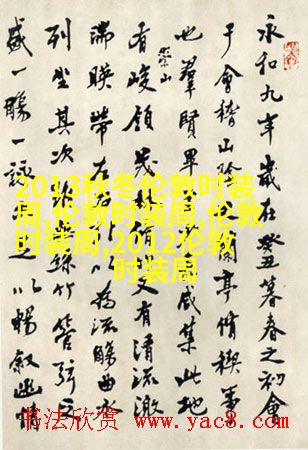 永和九年歲在癸丑暮春之初會
于會稽山陰蘭亭脩禊事
也羣賢畢咸集此地
有崇山峻領茂又有清流激
湍暎帶左為流觴曲水
列坐其次絲竹管弦之
盛一觴一詠以暢敘幽情
2013秋冬伦敦时装
周,伦敦时装周,伦敦
时装周,2012伦敦
时装周
书法欣赏 www.yac8.com